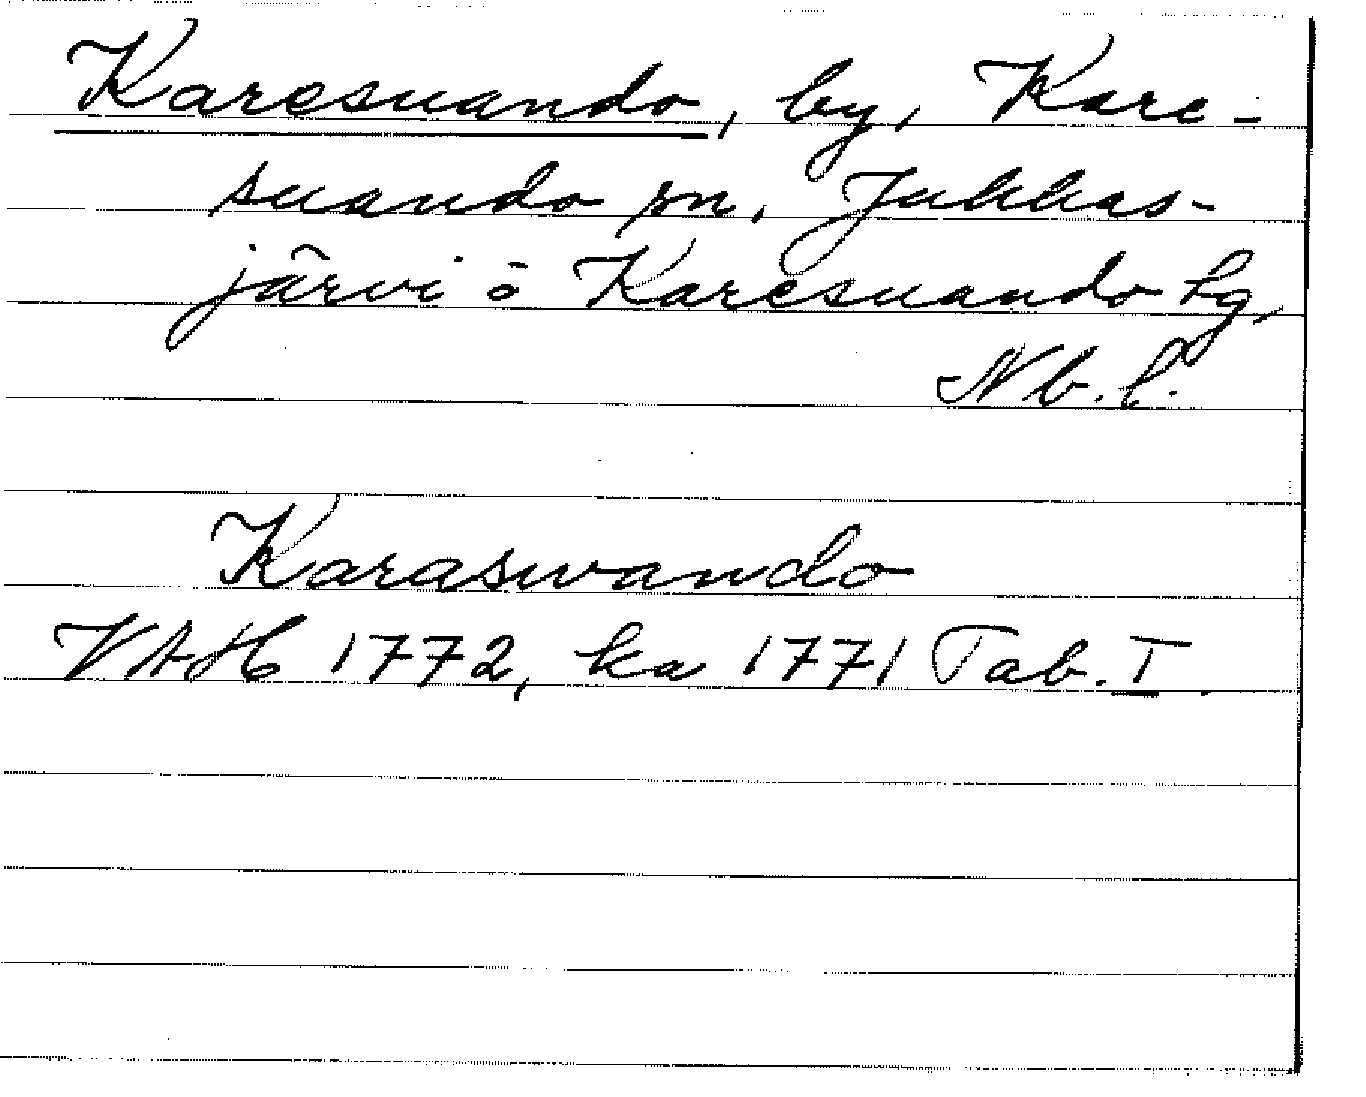 Karesuando, by, Kare-
suando sn, Jukkas-
järvi o Karesuando lg,
Nb. l.
Karaswando
VAH 1772, ka 1771 Tab. I.